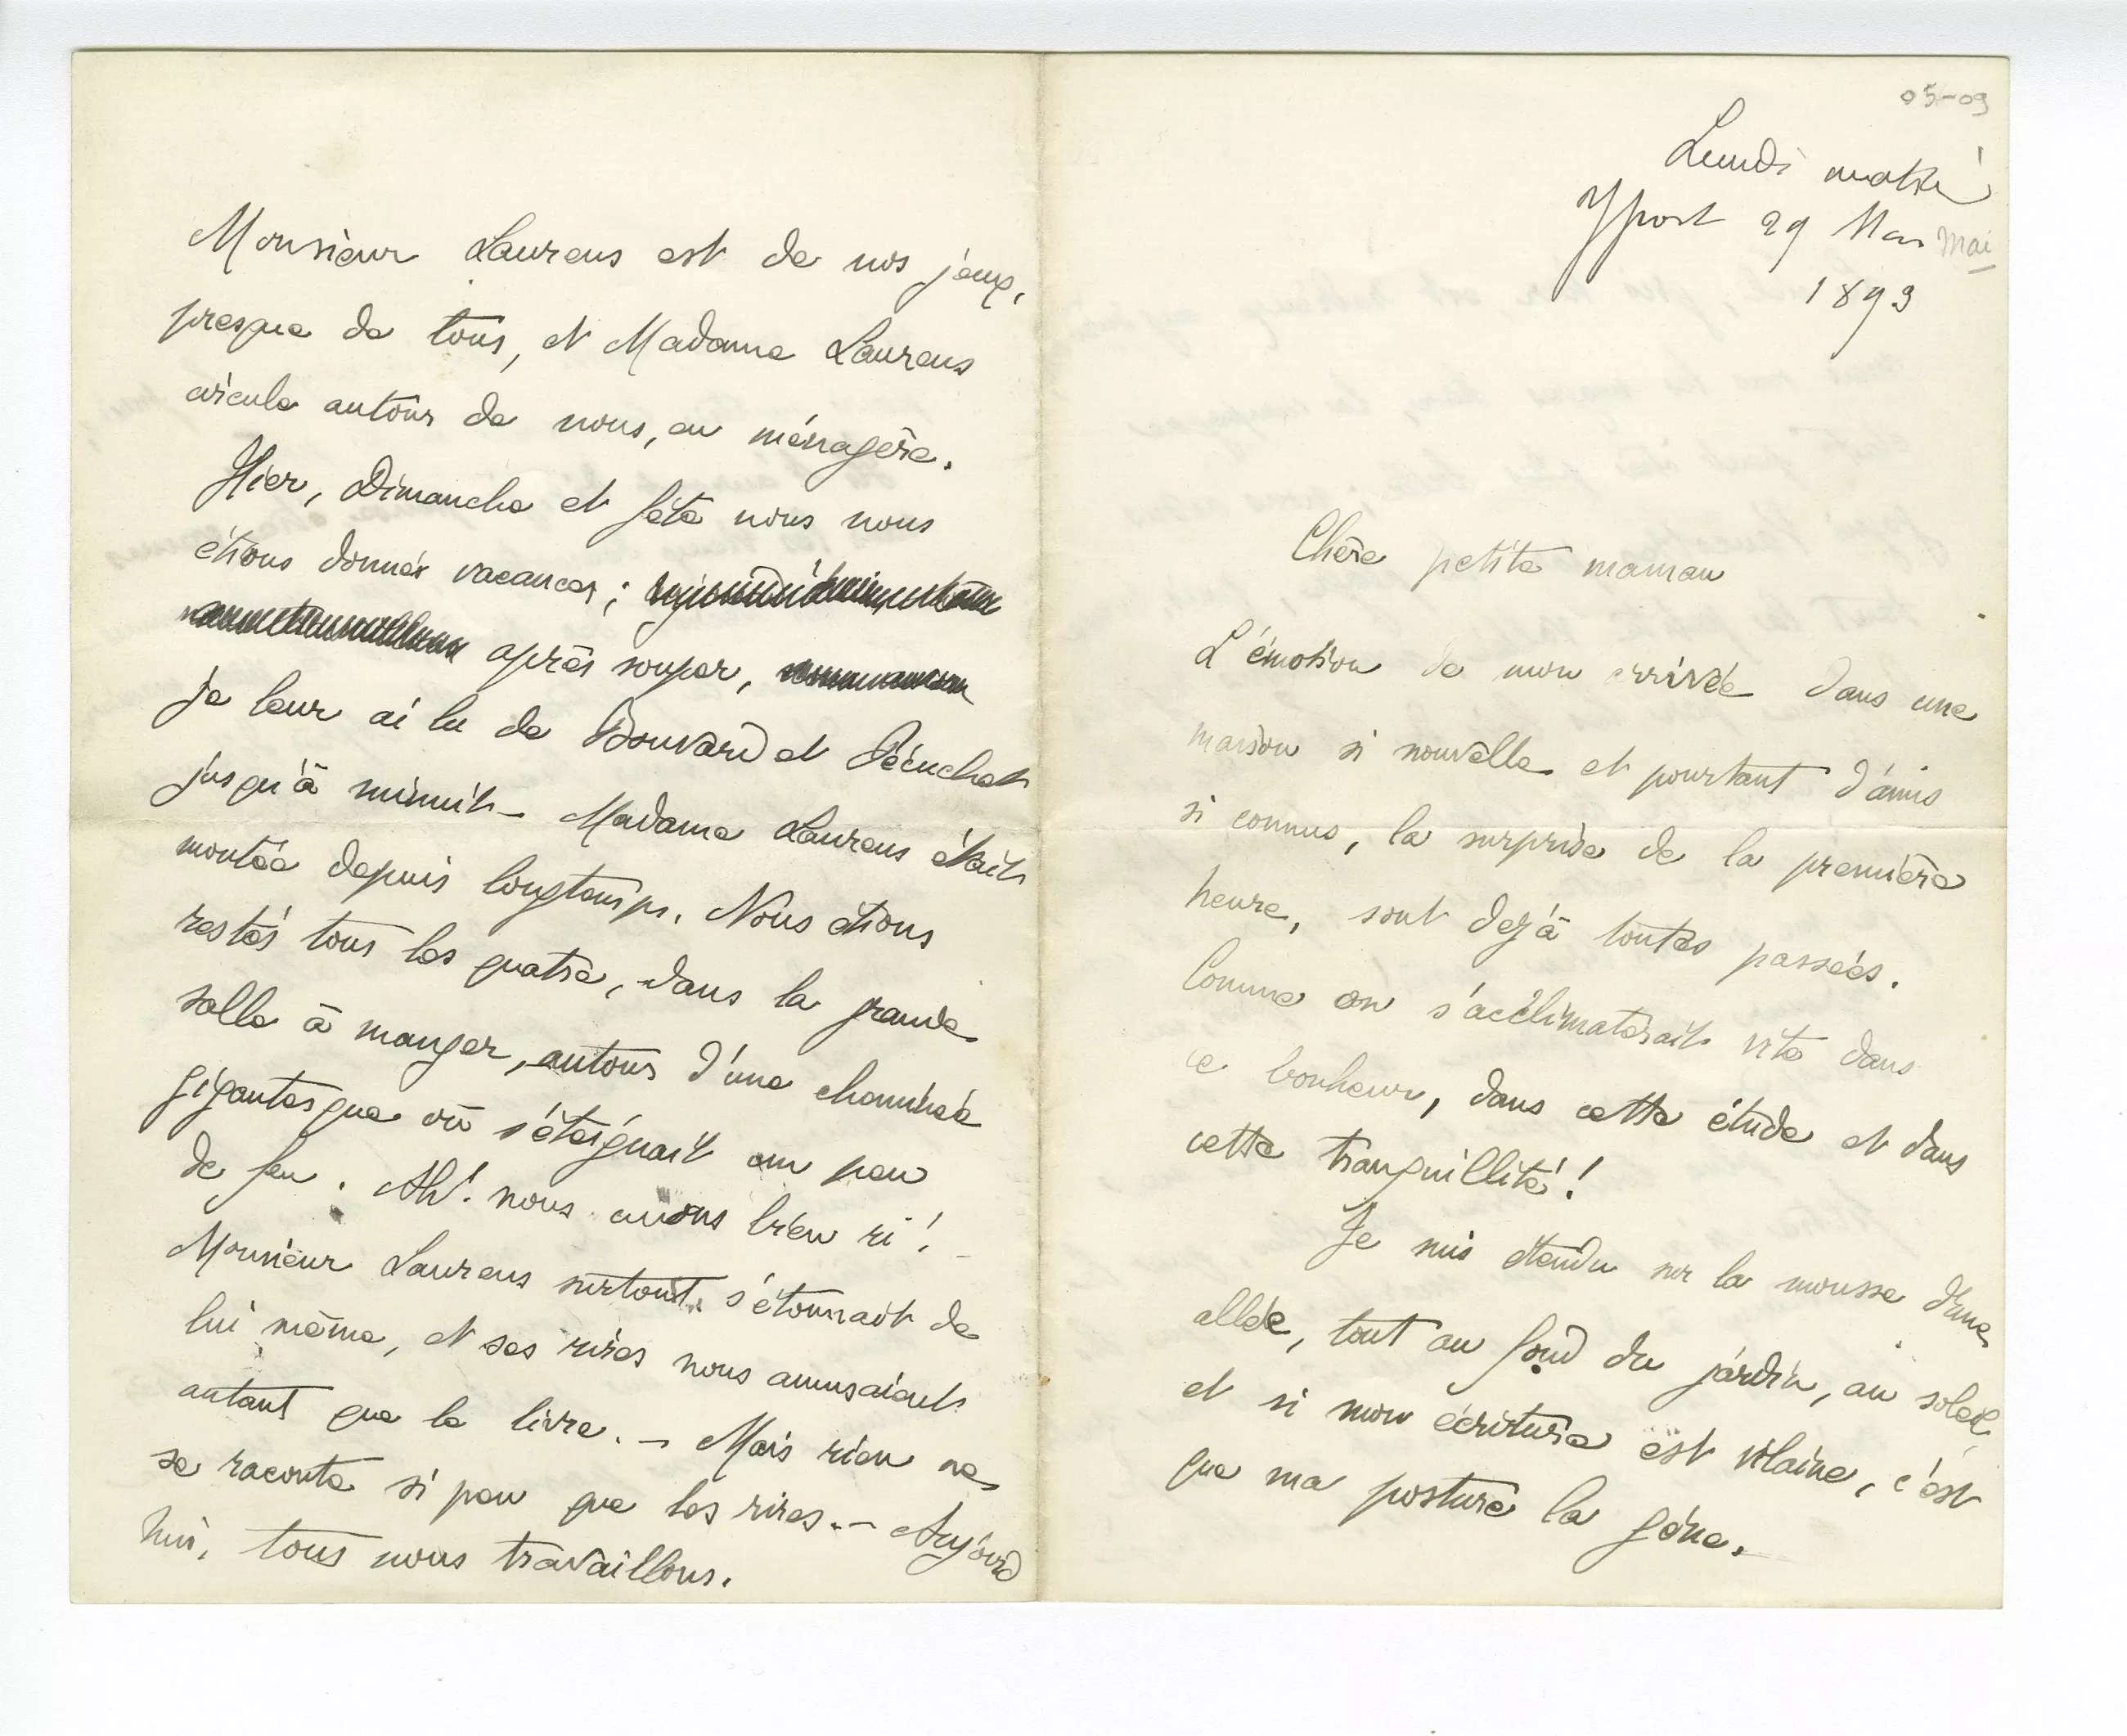 05-09
Lundi matin
Yport 29 Mai Mai
1893
Chère petite maman
L'émotion de mon arrivée dans une
maison si nouvelle et pourtant d'amis
si connus, la surprise de la première
heure, sont dejà toutes passées.
Comme on s'acclimaterait vite dans
ce bonheur, dans cette étude et dans
cette tranquillité!
Je suis étendu sur la mousse d'une
allée, tout au fond du jardin, au soleil,
et si mon écriture est vilaine, c'est
que ma posture la gêne.
Monsieur Laurens est de nos jeux,
presque de tous, et Madame Laurens
circule autour de nous, en ménagère.
Hier, Dimanche et fête nous nous
étions donnés vacances;
après souper,
je leur ai lu de Bouvard et Pécuchet
jusqu'à minuit — Madame Laurens était
montée depuis longtemps. Nous étions
restés tous les quatre, dans la grande
salle à manger, autour d'une cheminée
gigantesque où s'éteignait un peu
de feu. Ah! nous avons bien ri! —
Monsieur Laurens surtout s'étonnait de
lui même, et ses rires nous amusaient
autant que le livre. — Mais rien ne
se raconte si peu que les rires. — Aujourd
hui, tous nous travaillons.